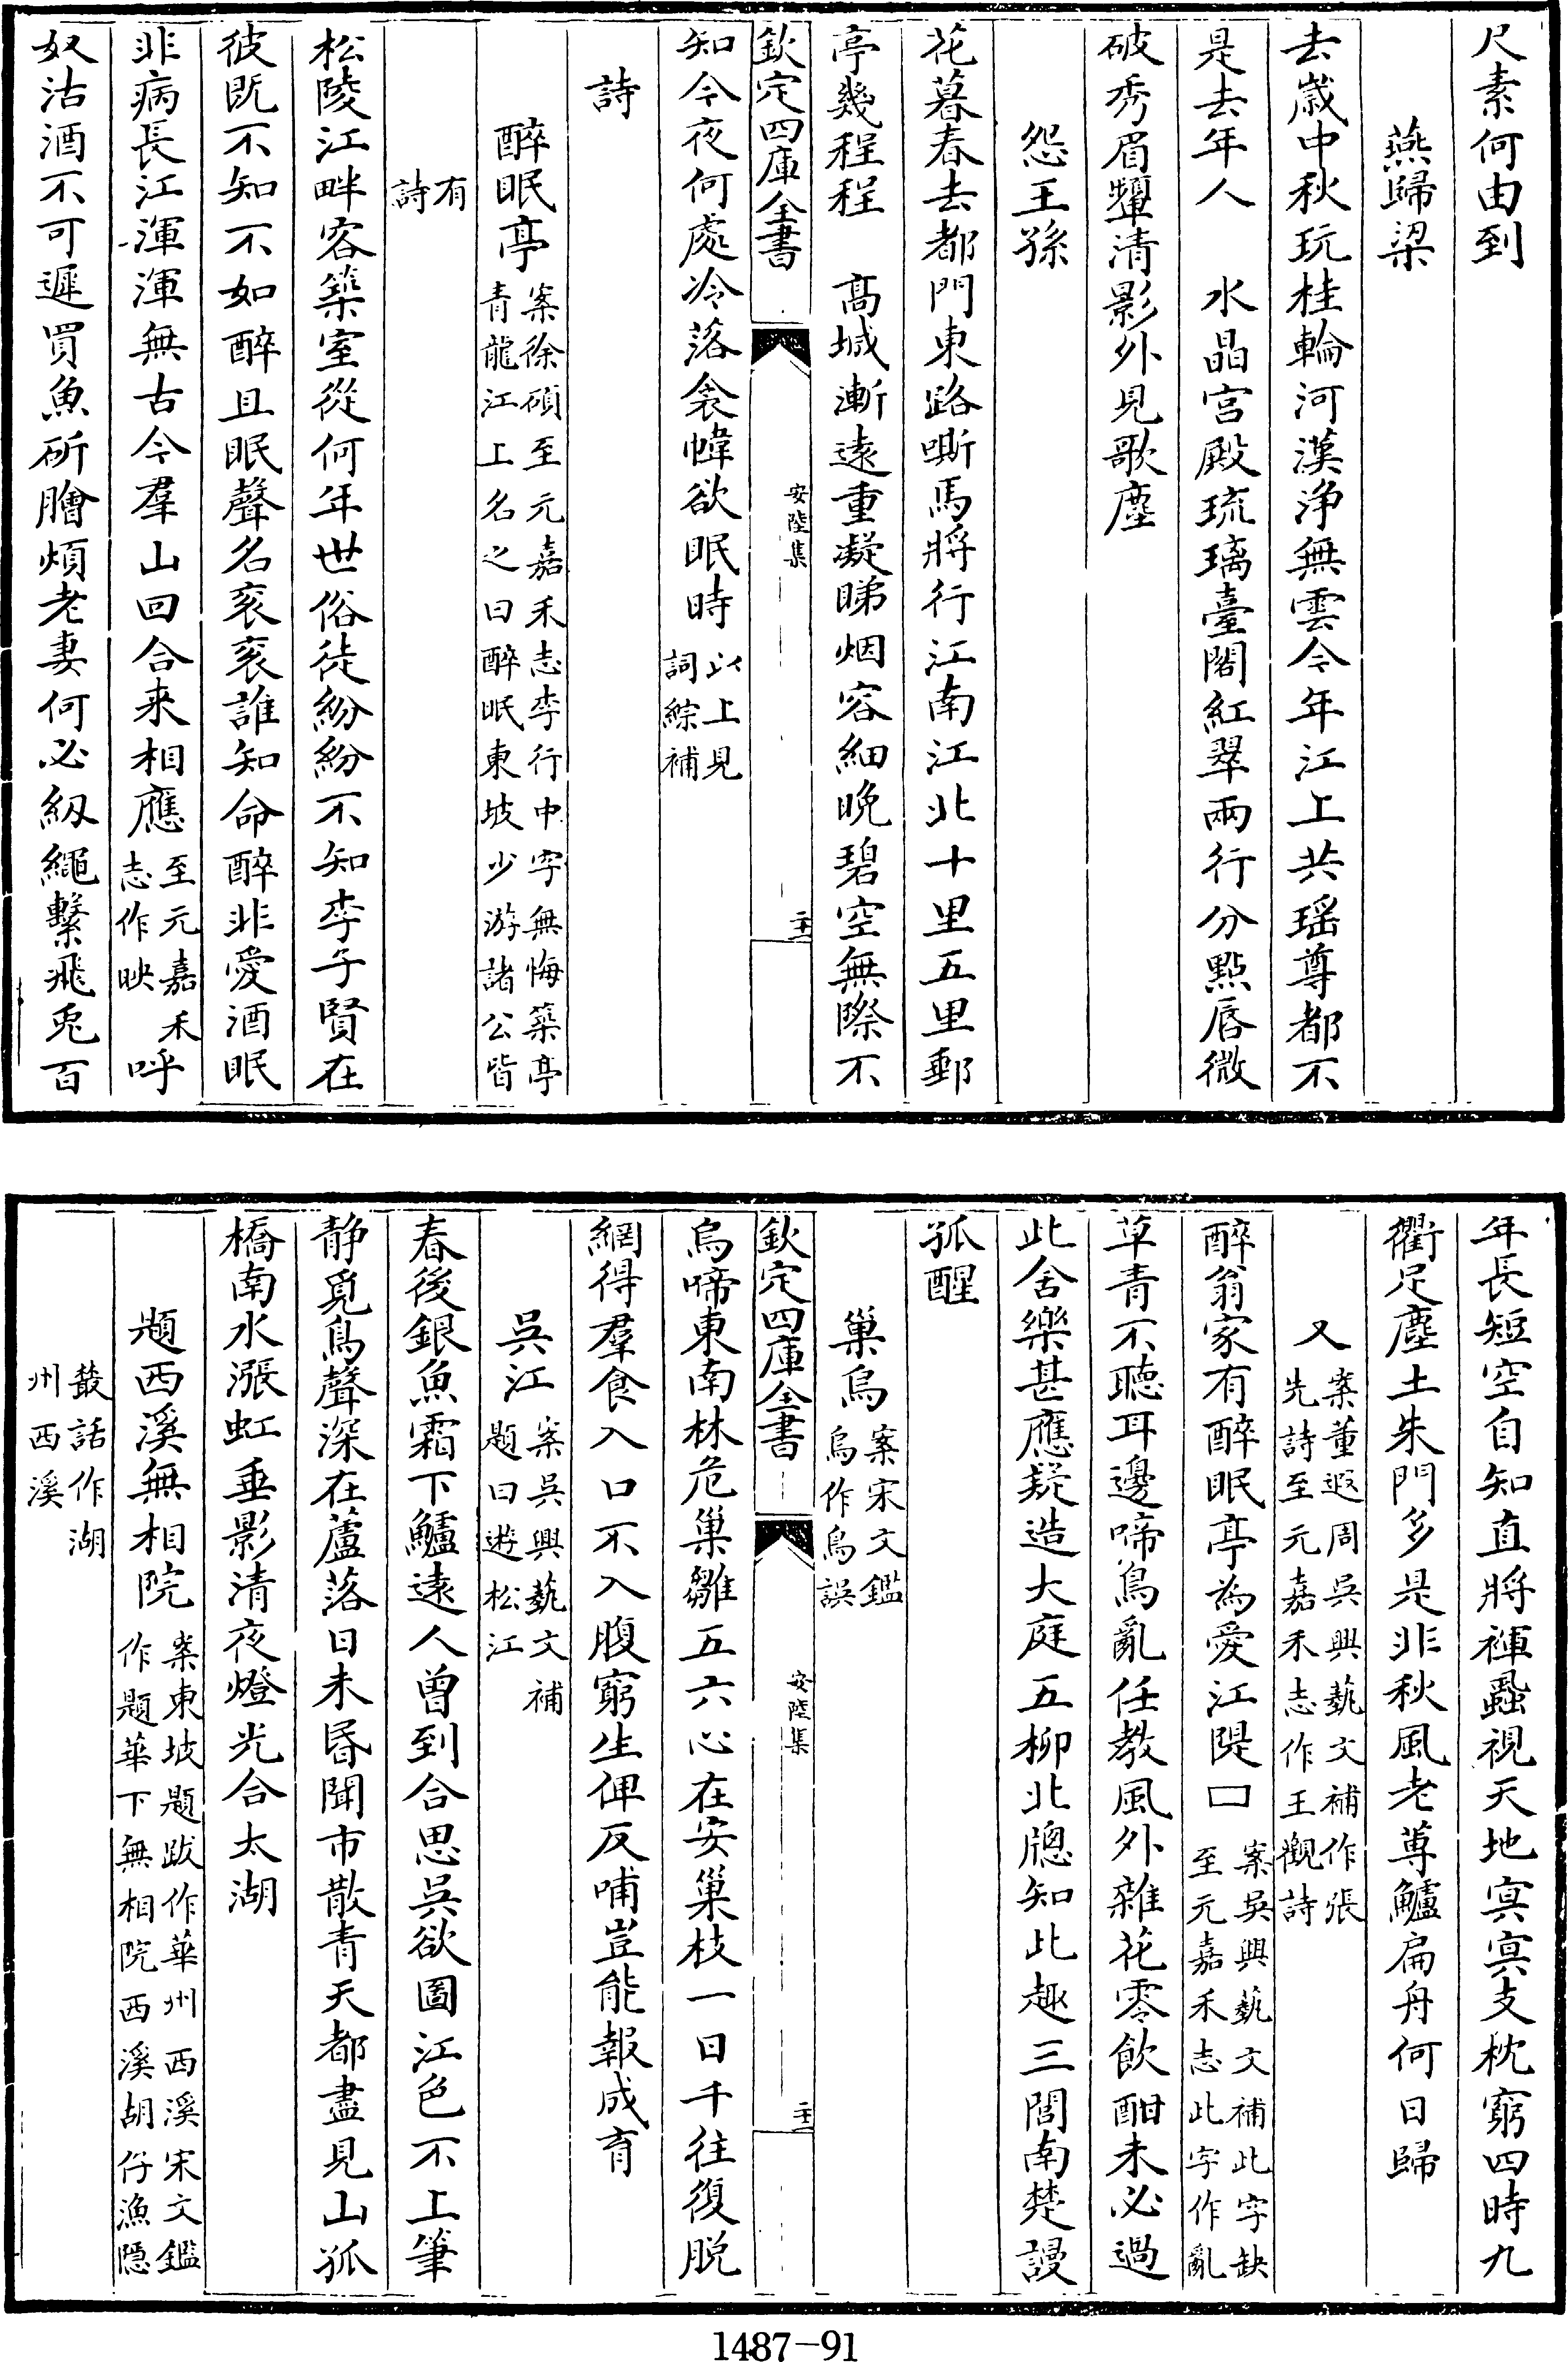 尺素何由到
燕歸梁
去歳中秋玩桂輪河漢浄無雲今年江上共瑶尊都不
是去年人　水晶宫殿琉璃臺閣紅翠兩行分㸃唇微
破秀眉顰清影外見歌塵
怨王孫
花暮春去都門東路嘶馬將行江南江北十里五里郵
亭幾程程　髙城漸逺重凝睇烟容細晩碧空無際不
欽定四庫全書
安陸集
二十一
知今夜何處冷落衾幃欲眠時以上見詞綜補
詩
醉眠亭案徐碩至元嘉禾志李行中字無悔築亭青龍江上名之曰醉眠東坡少游諸公皆
有詩
松陵江畔客築室從何年世俗徒紛紛不知李子賢在
彼既不知不如醉且眠聲名衮衮誰知命醉非愛酒眠
非病長江渾渾無古今羣山回合来相應至元嘉禾志作映呼
奴沽酒不可遲買魚斫膾煩老妻何必紉繩繫飛兎百
年長短空自知直將裈蝨視天地㝠㝠支枕窮四時九
衢足塵土朱門多是非秋風老蓴鱸扁舟何日歸
又案董遐周吳興藝文補作張先詩至元嘉禾志作王觀詩
醉翁家有醉眠亭為愛江隄口案吳興藝文補此字缺至元嘉禾志此字作亂
草青不聽耳邊啼鳥亂任教風外雜花零飲酣未必過
此舍樂甚應疑造大庭五柳北牕知此趣三閭南楚謾
孤醒
巢烏案宋文鑑烏作鳥誤
欽定四庫全書
安陸集
二十二
烏啼東南林危巢雛五六心在安巢枝一日千往復脱
網得羣食入口不入腹窮生俾反哺豈能報成育
吳江案吳興藝文補題曰遊松江
春後銀魚霜下鱸逺人曾到合思吳欲圖江色不上筆
静覓鳥聲深在蘆落日未昏聞市散青天都盡見山孤
橋南水漲虹垂影清夜燈光合太湖
題西溪無相院案東坡題跋作華州西溪宋文鑑作題華下無相院西溪胡仔漁隱
叢話作湖州西溪
1487-91